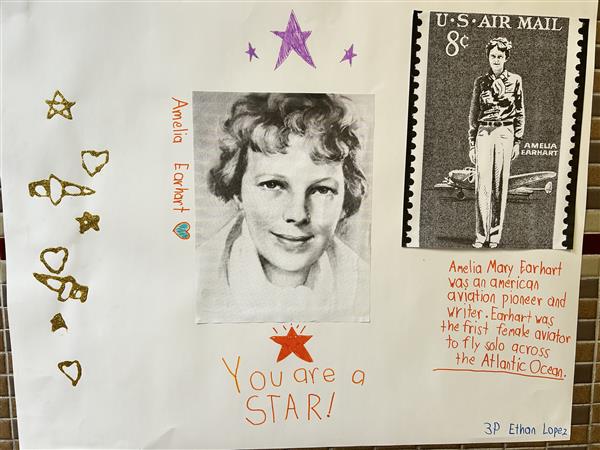 U·S·AIR MAIL
8¢
AMELIA
EARHART
Amelia Earhart
Amelia Mary Earhart
was an american
aviation pioneer and
writer. Earhart was
the frist female aviator
to fly solo across
the Atlantic Ocean.
You are a
STAR!
3P Ethan Lopez